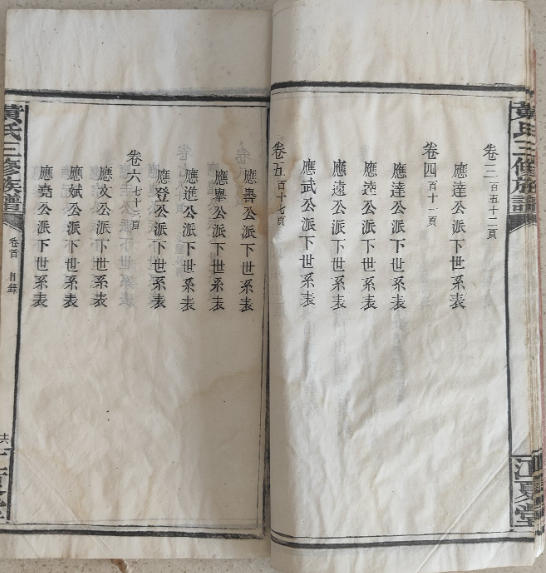 黃氏三修族譜
江夏堂
卷三 一百五十二頁
應達公派下世系表
卷四 百十一頁
應達公派下世系表
應逵公派下世系表
應遠公派下世系表
應武公派下世系表
卷五 一百十七頁
應書公派下世系表
應舉公派下世系表
應進公派下世系表
應登公派下世系表
卷六 七十三頁
應文公派下世系表
應斌公派下世系表
應堯公派下世系表
黃氏三修族譜
卷首 目錄